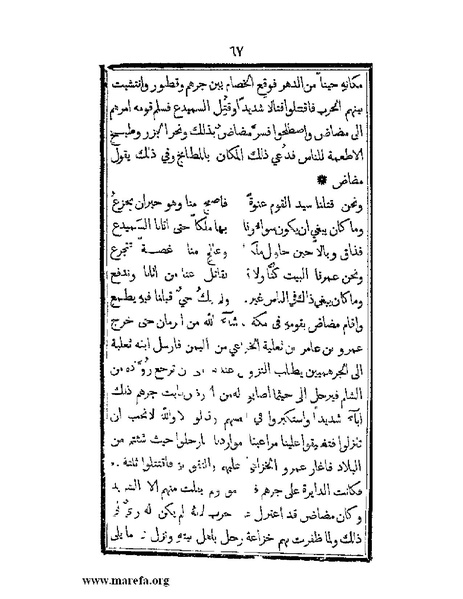 ٦٧
مكانه حيناً من الدهر فوقع الخصام بين جرهم وقطور وانتشبت
بينهم الحرب فاقتتلوا قتالا شديداً وقُتِل السميدع فسلم قومه امرهم
الى مضاض واصطلحوا فسرَّ مضاض بذلك ونحر الجزر وطبخ
الاطعمة للناس فدُعي ذلك المكان بالمطابخ وفي ذلك يقول
مضاض *
ونحن قتلنا سيد القوم عنوةً فاصبح منا وهو حيران يجزعُ
وما كان يبغي ان يكون سواؤنا بها ملكاً حتى اتانا السميدع
فذاق وبالا حين حاول ملكنا وعالج منا غصةً تتجرع
ونحن عمرنا البيت كنَّا ولاته نقاتل عنا من اتانا وندفع
وما كان يبغي ذلك في الناس غيرنا ولم يكُ حيٌّ قبلنا فيه يطمع
واقام مضاض بقومه في مكة ما شاء الله من ازمان حتى خرج
عمرو بن عامر بن ثعلبة الخزاعي من اليمن فارسل ابنه ثعلبة
الى الجرهميين يطلب النزول عندهم ترجع روَّاده من
الشام فيرحل الى حيثما اصابوا له من فابت جرهم ذلك
اباءً شديداً واستكبروا في انفسهم وقالوا لا والله لا نحب ان
تنزلوا فتضيقوا علينا مراعينا ومواردنا فارحلوا حيث شئتم من
البلاد فاغار عمرو الخزاعي عليهم والتقوا فاقتتلوا
فكانت الدايرة على جرهم فلم يفلت منهم الا الشريد
وكان مضاض قد اعتزل حرب لم يكن له
ذلك ولما ظفرت بهم خزاعة رحل باهل بيته ونزل ما يلي
www.marefa.org